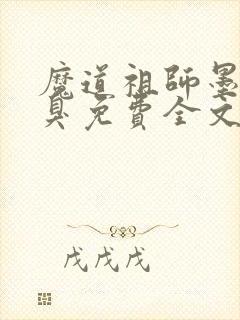 魔道祖师墨
臭免費全文
戊戊戊